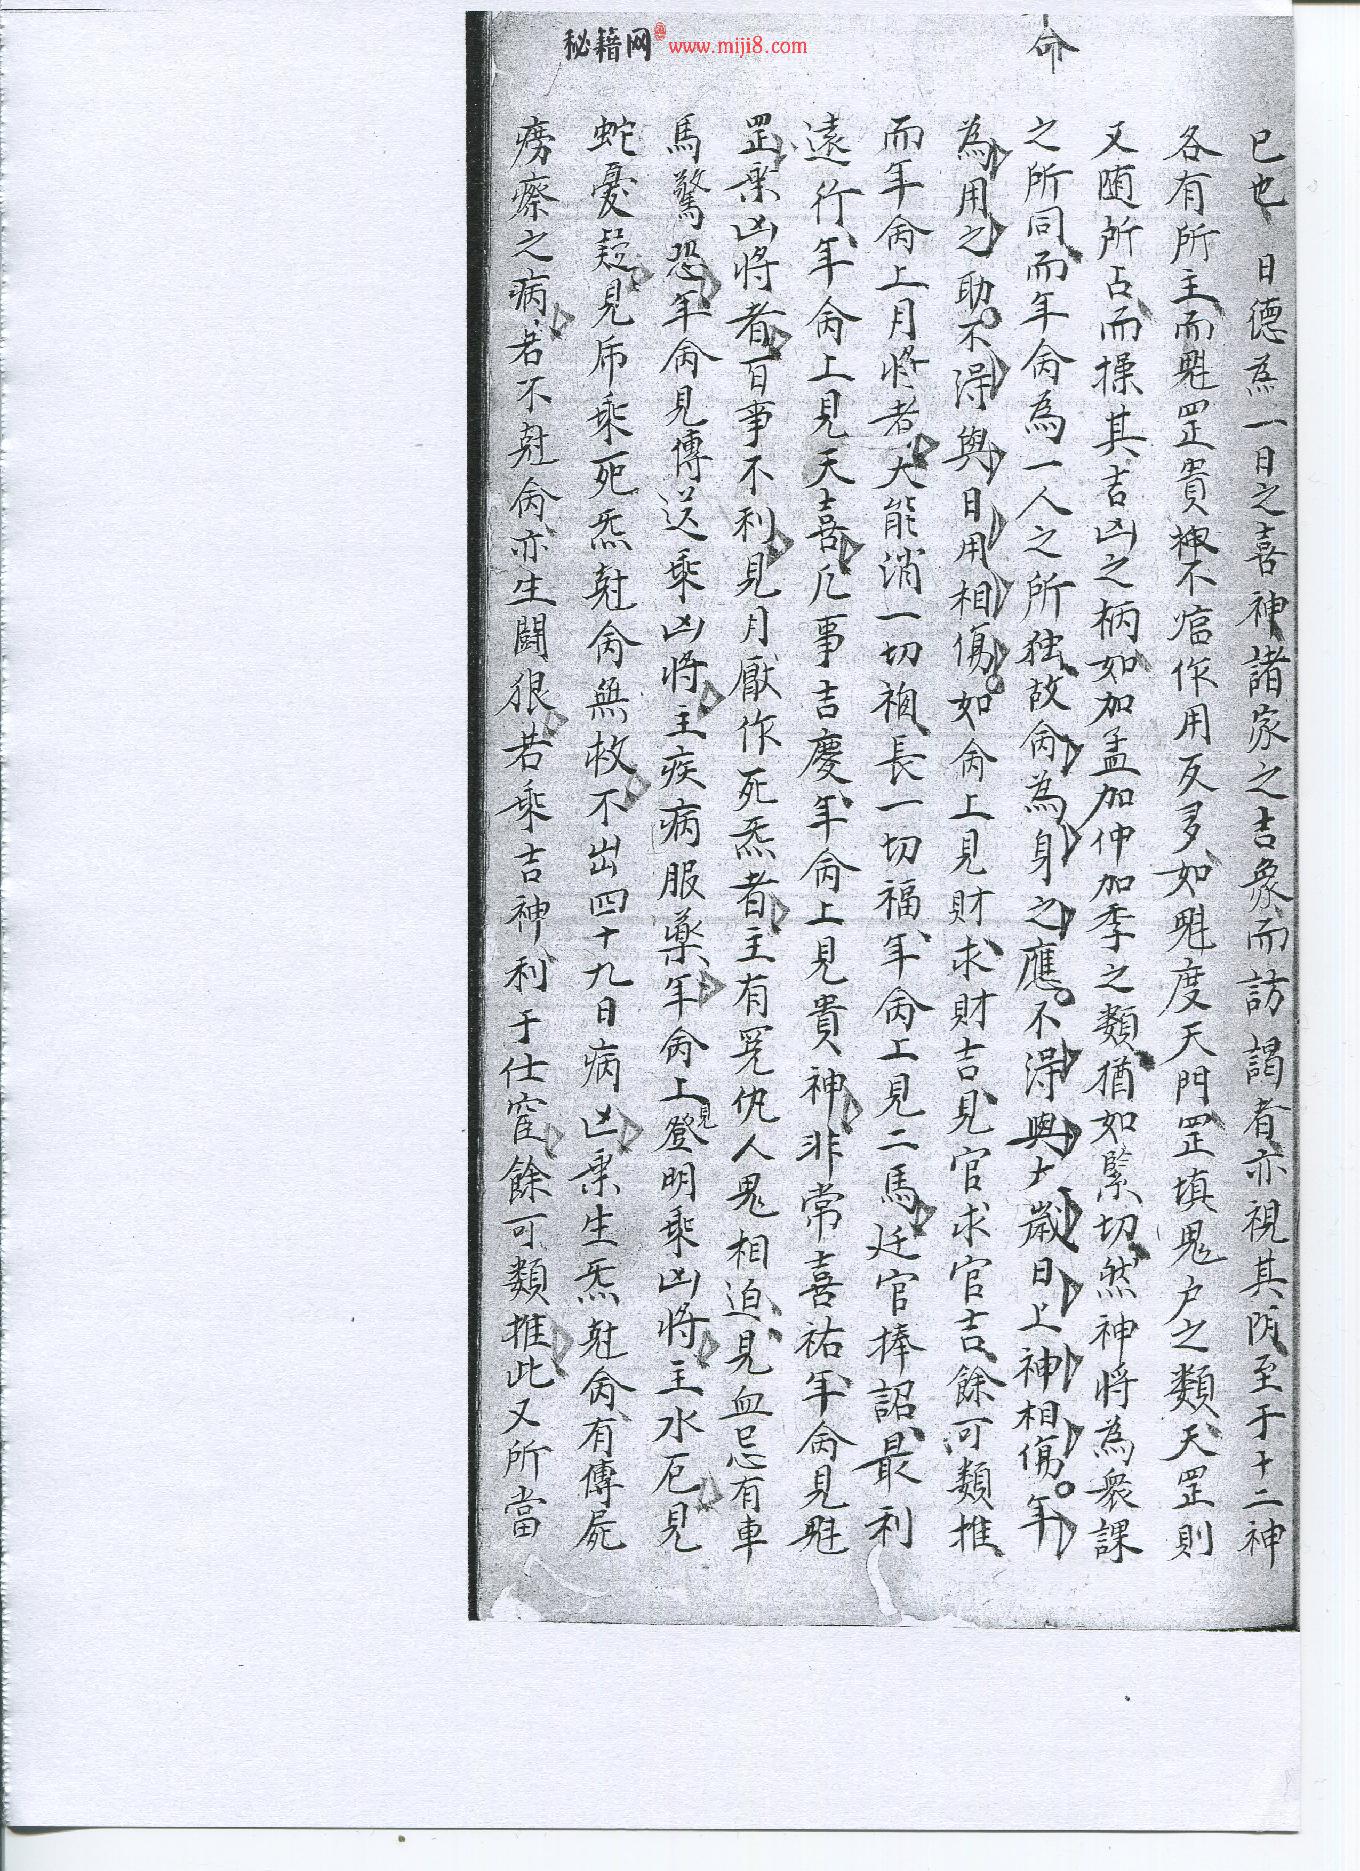 秘籍网 www.miji8.com
命
已也日德為一日之喜神諸家之吉象而訪謁者亦視其門至于十二神
各有所主而魁罡貴神不宿作用反多如魁度天門罡填鬼户之類天罡則
又随所占而操其吉凶之柄如加孟加仲加季之類猶如緊切然神将為衆課
之所同而年命為一人之所独故命為身之應不淂與太歲日上神相傷年
為用之助不淂與日用相傷如命上見財求財吉見官求官吉餘可類推
而年命上月将者大能消一切禍長一切福年命上見二馬廷官捧詔最利
遠行年命上見天喜凡事吉慶年命上見貴人神非常喜祐年命見魁
罡乘凶将者百事不利見月厭作死炁者主有冤仇人鬼相迫見血忌有車
馬驚恐年命見傳送乘凶将主疾病服藥年命上見登明乘凶将主水厄見
蛇憂疑見虎乘死炁尅命無救不出四十九日病凶乘生炁尅命有傳屍
痨瘵之病若不尅命亦生闘狠若乘吉神利于仕宦餘可類推此又所當